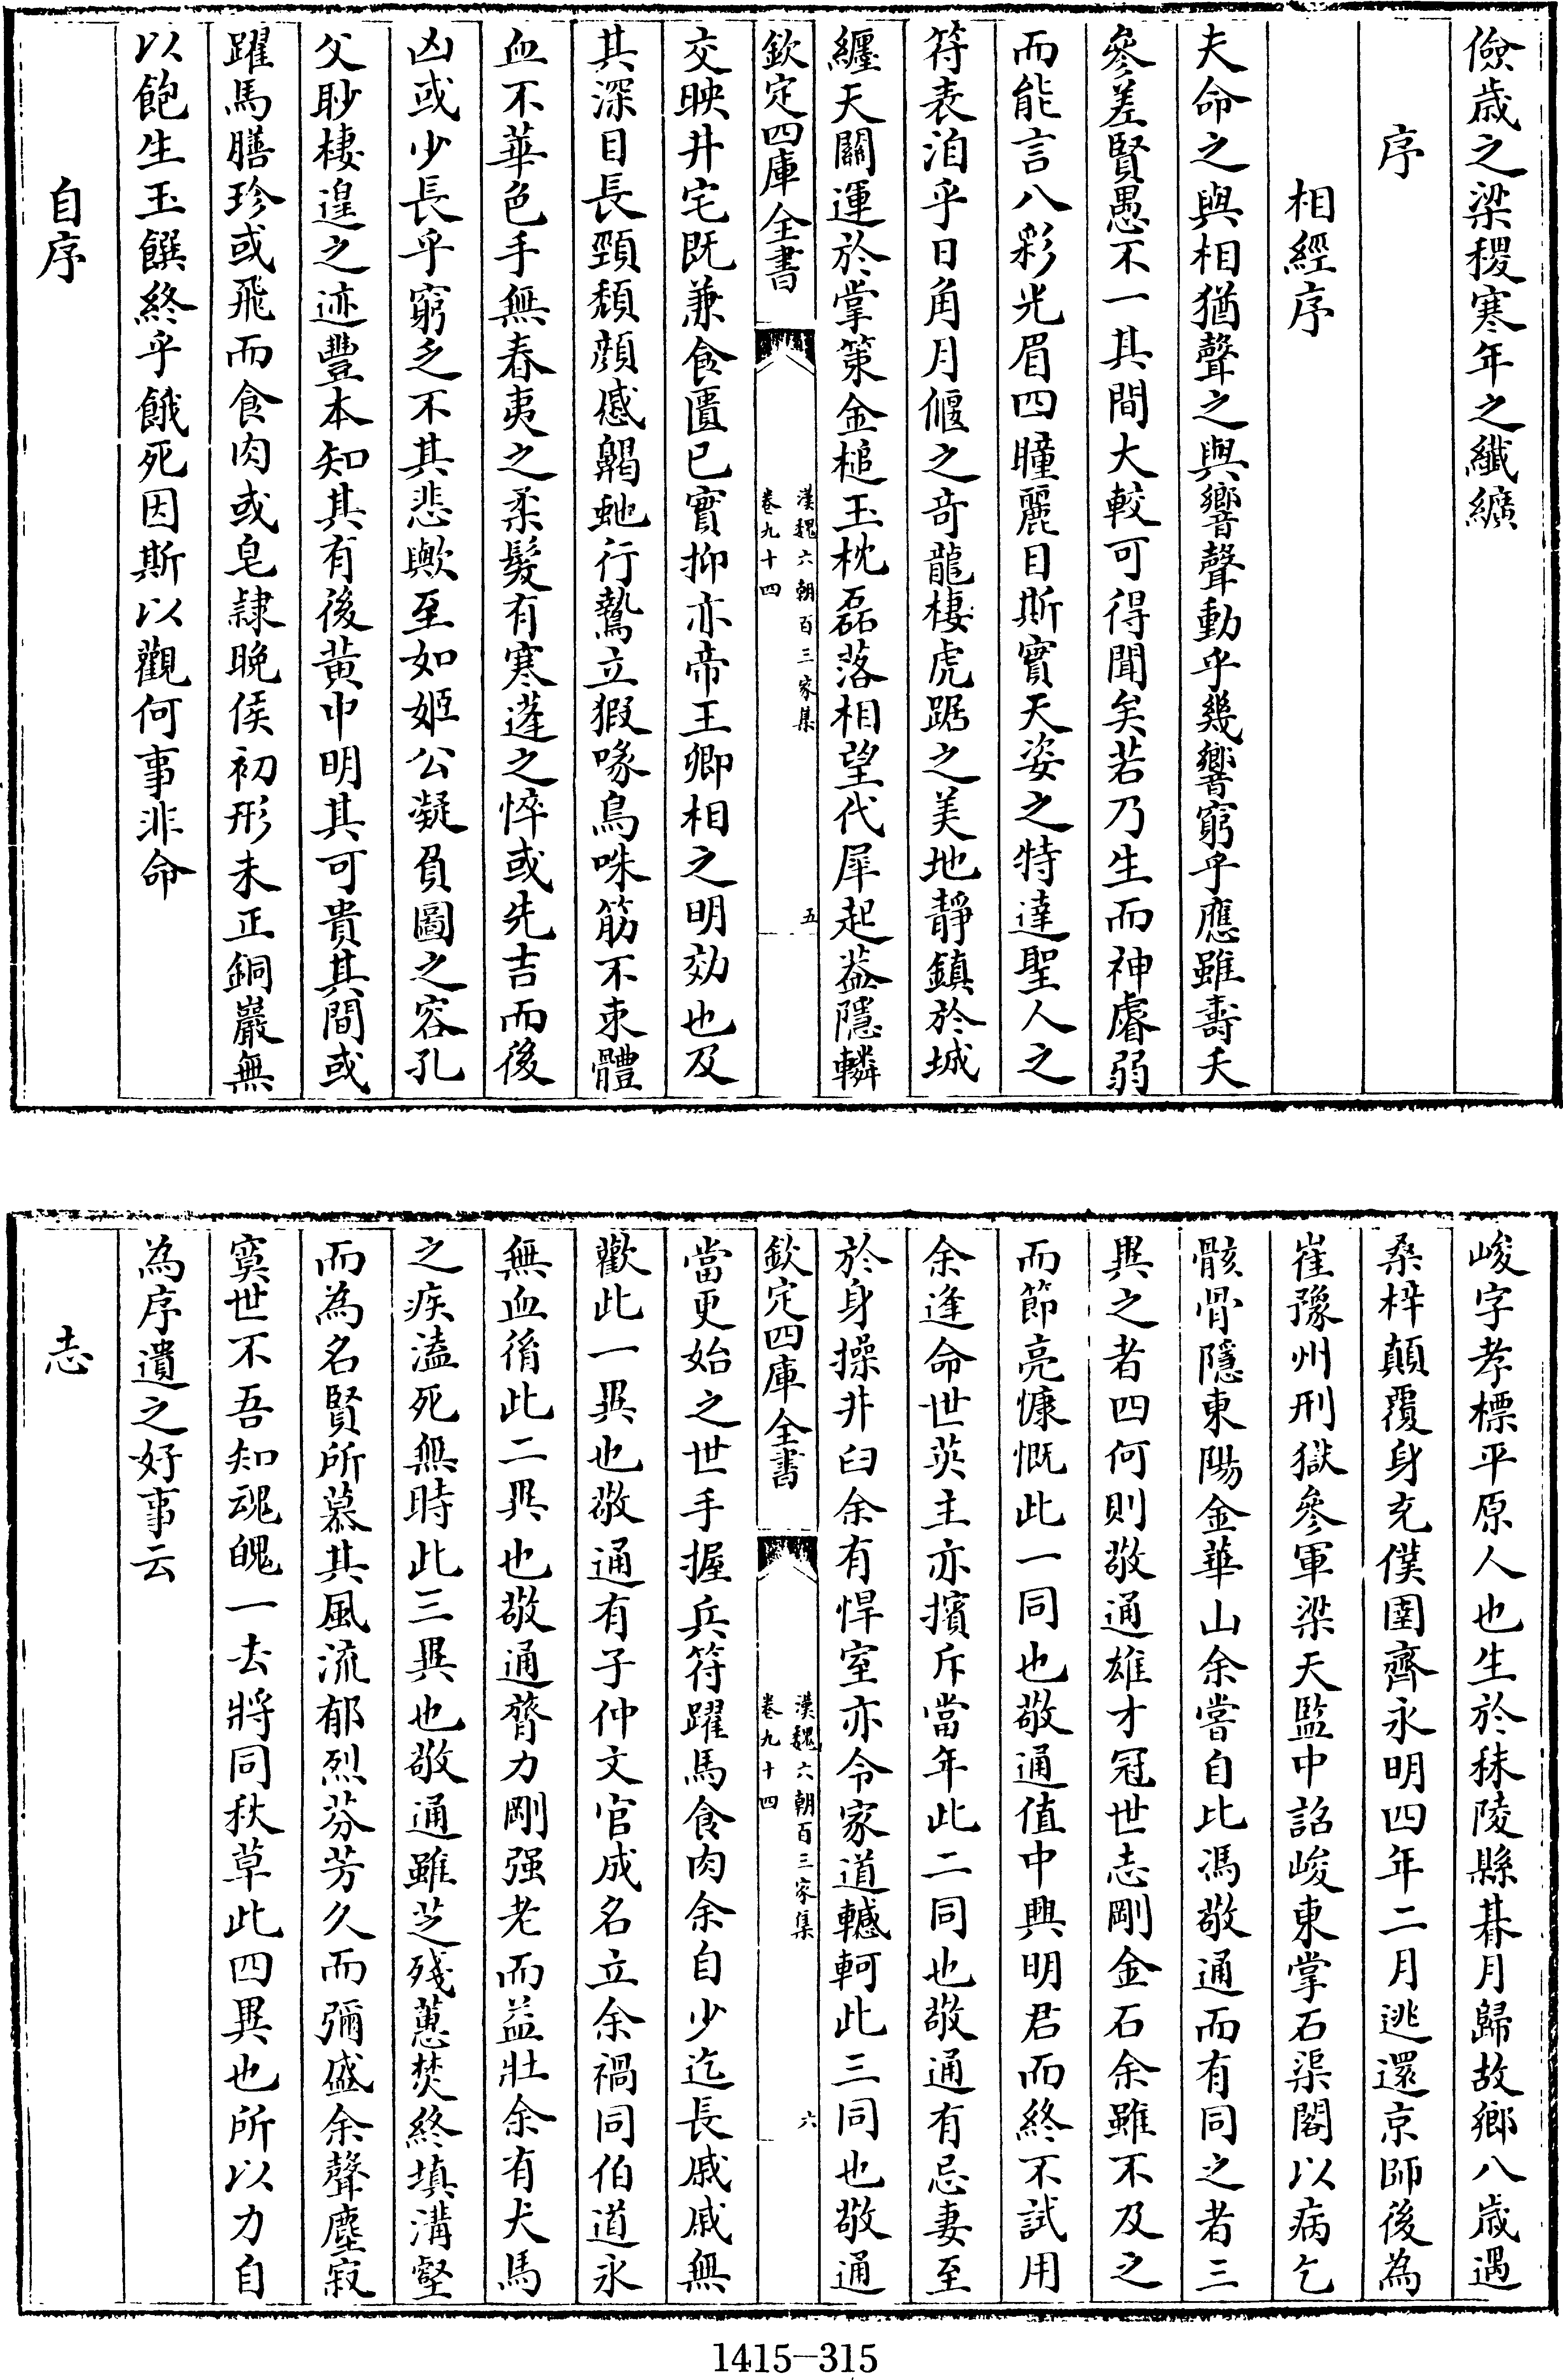 儉歲之梁稷寒年之纎纊
序
相經序
夫命之與相猶聲之與響聲動乎幾響窮乎應雖壽夭
參差賢愚不一其間大較可得聞矣若乃生而神睿弱
而能言八彩光眉四瞳麗目斯實天姿之特達聖人之
符表洎乎日角月偃之竒龍棲虎踞之美地靜鎮於城
纒天關運於掌策金槌玉枕磊落相望伏犀起蓋隱轔
欽定四庫全書
漢魏六朝百三家集
卷九十四
五
交映井宅既兼食匱已實抑亦帝王卿相之明効也及
其深目長頸頽顔慼齃虵行鷙立猳喙鳥咮筋不束體
血不華色手無春荑之柔髮有寒蓬之悴或先吉而後
凶或少長乎窮乏不其悲歟至如姬公凝負圖之容孔
父眇棲遑之迹豐本知其有後黄中明其可貴其間或
躍馬膳珍或飛而食肉或皂隷晚侯初形未正銅巖無
以飽生玉饌終乎餓死因斯以觀何事非命
自序
峻字孝標平原人也生於秣陵縣朞月歸故鄉八歲遇
桑梓顛覆身充僕圉齊永明四年二月逃還京師後為
崔豫州刑獄參軍梁天監中詔峻東掌石渠閣以病乞
骸骨隱東陽金華山余嘗自比馮敬通而有同之者三
異之者四何則敬通雄才冠世志剛金石余雖不及之
而節亮慷慨此一同也敬通值中興明君而終不試用
余逢命世英主亦擯斥當年此二同也敬通有忌妻至
於身操井臼余有悍室亦令家道轗軻此三同也敬通
欽定四庫全書
漢魏六朝百三家集
卷九十四
六
當更始之世手握兵符躍馬食肉余自少迄長戚戚無
歡此一異也敬通有子仲文官成名立余禍同伯道永
無血𦙍此二異也敬通膂力剛强老而益壯余有犬馬
之疾溘死無時此三異也敬通雖芝殘蕙焚終填溝壑
而為名賢所慕其風流郁烈芬芳久而彌盛余聲塵寂
寞世不吾知魂魄一去將同秋草此四異也所以力自
為序遺之好事云
志
1415-315